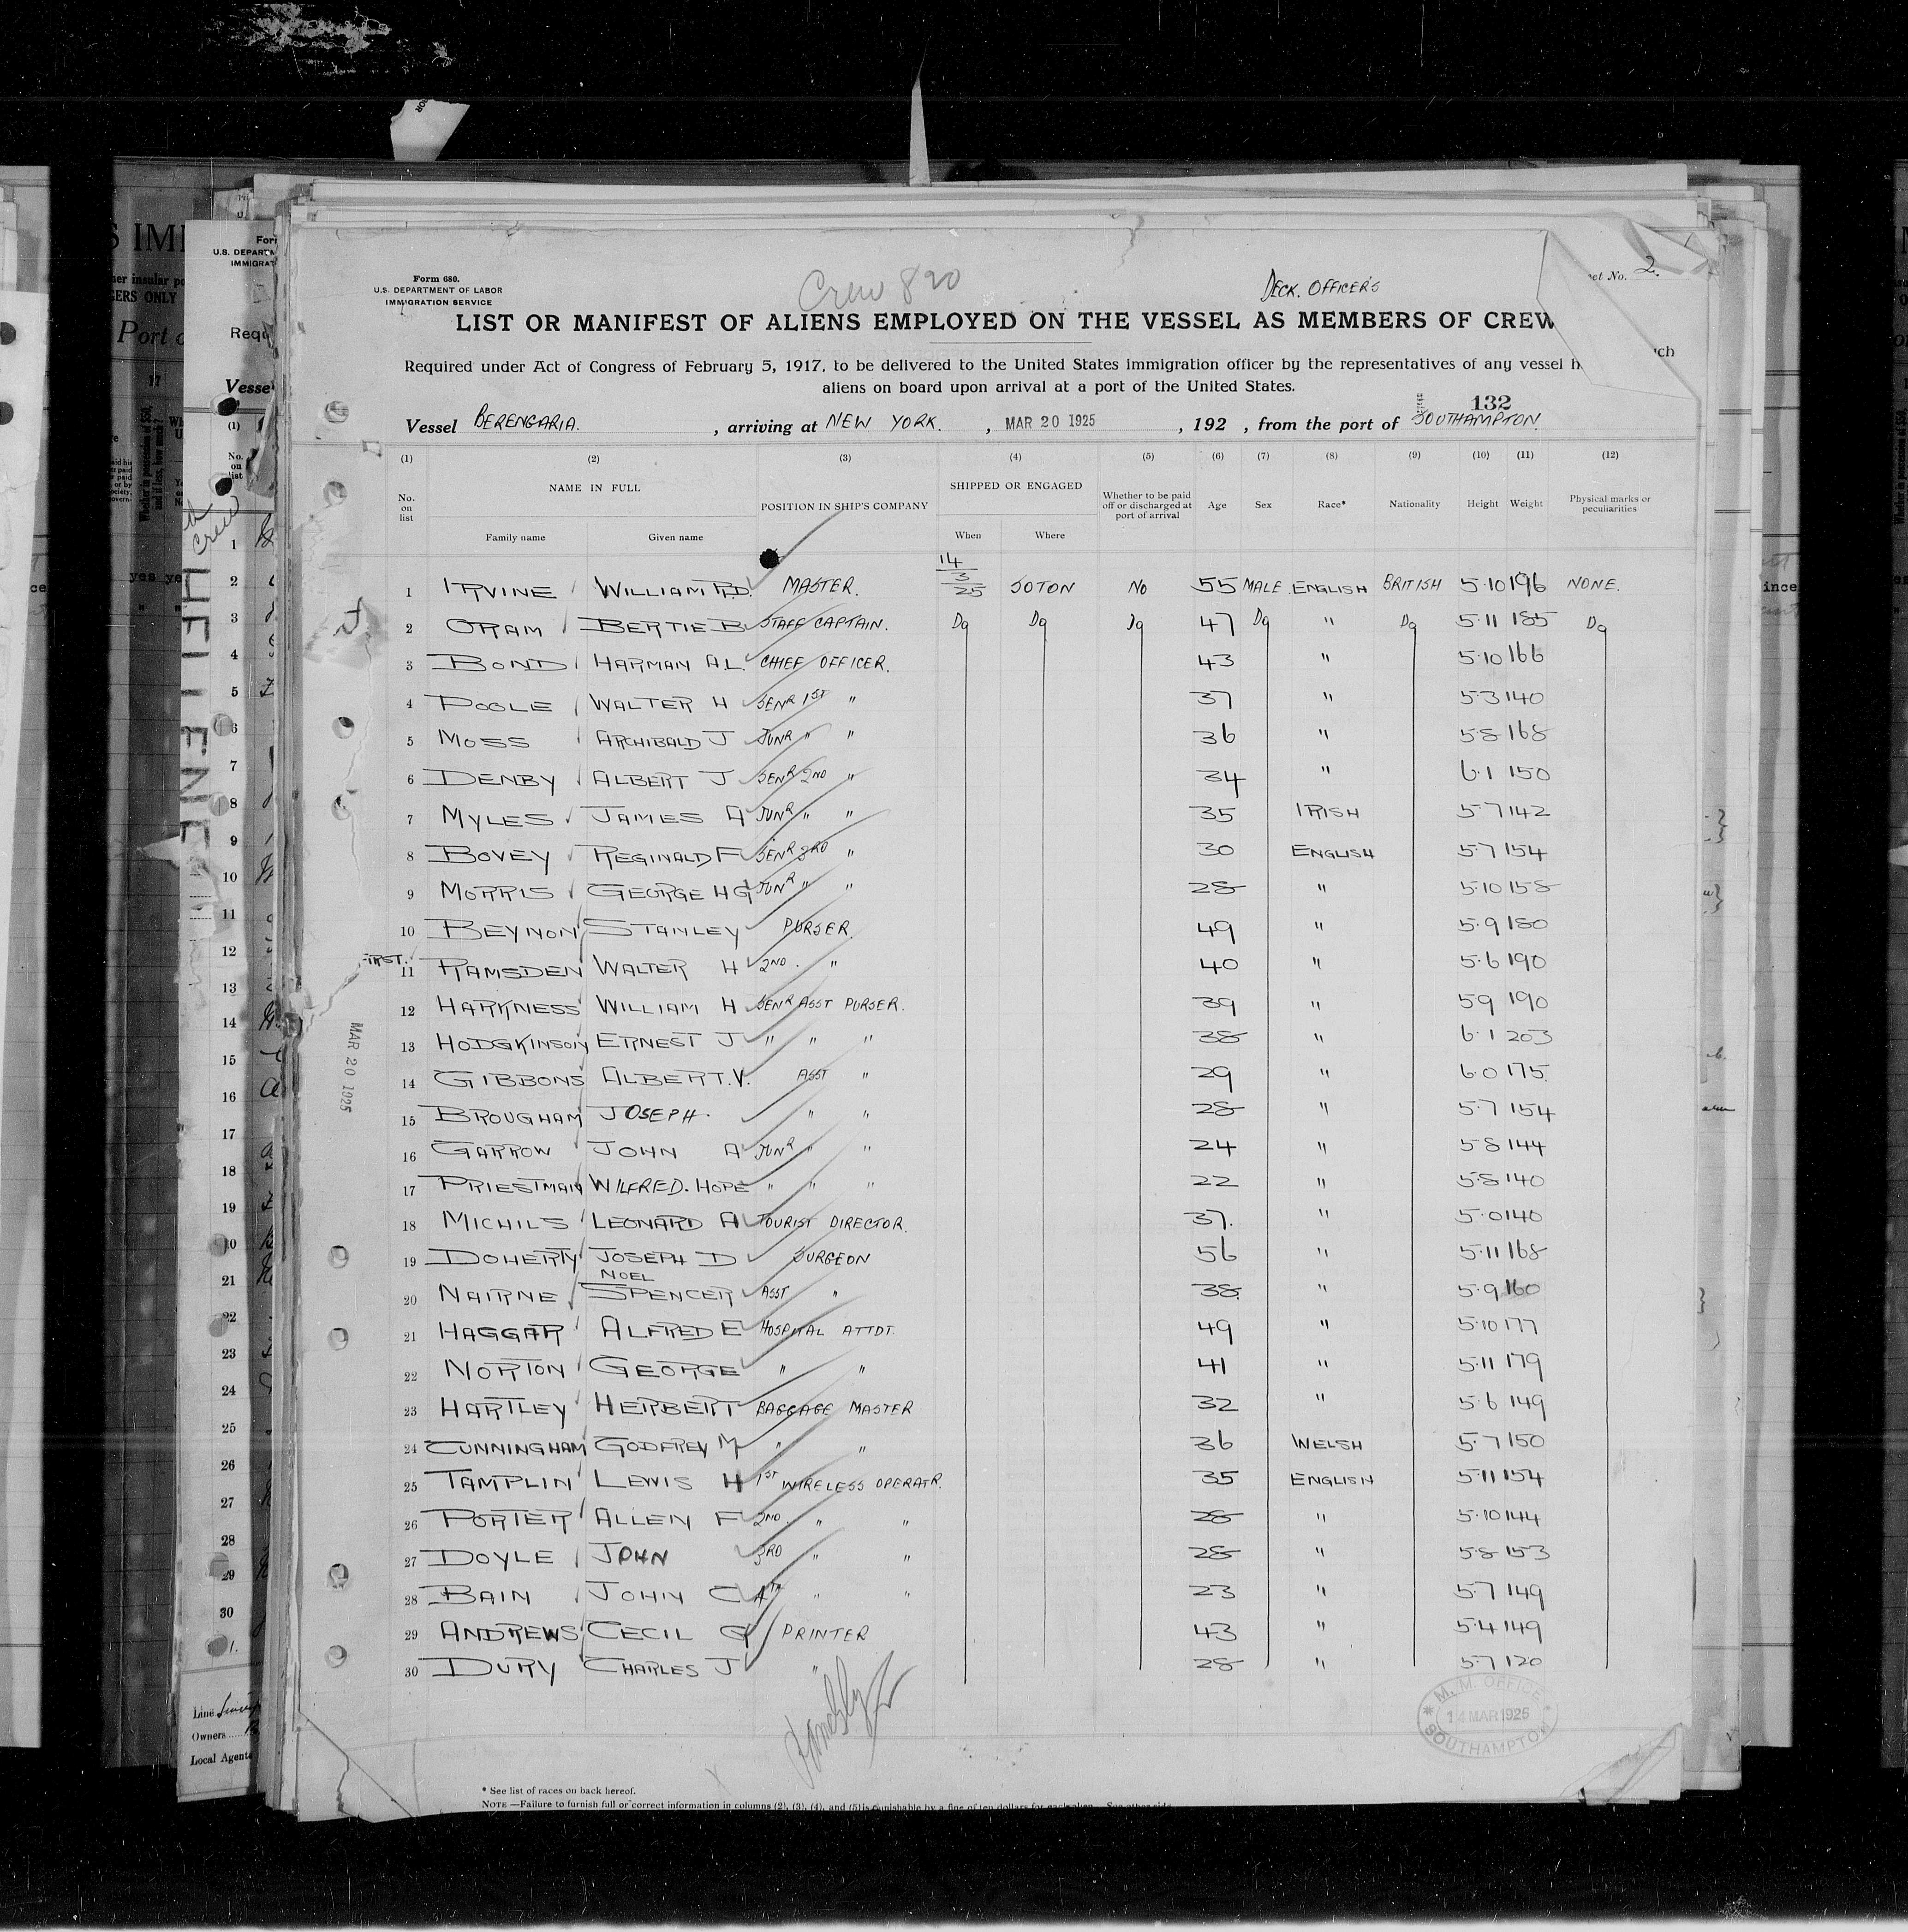 Form 680.
U.S. DEPARTMENT OF LABOR
IMMIGRATION SERVICE
Crew 820
DECK. OFFICERS
No. 2.
LIST OR MANIFEST OF ALIENS EMPLOYED ON THE VESSEL AS MEMBERS OF CREW
Required under Act of Congress of February 5, 1917, to be delivered to the United States immigration officer by the representatives of any vessel
aliens on board upon arrival at a port of the United States.
132
Vessel BERENGARIA. , arriving at NEW YORK. , MAR 20 1925 , 192 , from the port of SOUTHAMPTON.
(1) (2) (3) (4) (5) (6) (7) (8) (9) (10) (11) (12)
No. on list NAME IN FULL POSITION IN SHIP'S COMPANY SHIPPED OR ENGAGED Whether to be paid off or discharged at port of arrival Age Sex Race* Nationality Height Weight Physical marks or peculiarities
Family name Given name When Where
1 IRVINE WILLIAM R.D. MASTER. 14/3/25 SOTON NO 55 MALE ENGLISH BRITISH 5·10 196 NONE.
2 ORAM BERTIE B STAFF CAPTAIN. Do Do Do 47 Do " Do 5·11 185 Do
3 BOND HARMAN A.L. CHIEF OFFICER. 43 " 5·10 166
4 POOLE WALTER H SENR 1ST " 37 " 5·3 140
5 MOSS ARCHIBALD J JUNR " " 36 " 5·8 168
6 DENBY ALBERT J SENR 2ND " 34 " 6·1 150
7 MYLES JAMES A JUNR " " 35 IRISH 5·7 142
8 BOVEY REGINALD F SENR 3RD " 30 ENGLISH 5·7 154
9 MORRIS GEORGE H G JUNR " " 28 " 5·10 158
10 BEYNON STANLEY PURSER. 49 " 5·9 180
FIRST.
11 RAMSDEN WALTER H 2ND. " 40 " 5·6 190
12 HARKNESS WILLIAM H SENR ASST PURSER. 39 " 5·9 190
13 HODGKINSON ERNEST J " " " 38 " 6·1 203
14 GIBBONS ALBERT.V. ASST " 29 " 6·0 175.
15 BROUGHAM JOSEPH. " " 28 " 5·7 154
16 GARROW JOHN A JUNR " " 24 " 5·8 144
17 PRIESTMAN WILFRED. HOPE " " " 22 " 5·8 140
18 MICHILS LEONARD A TOURIST DIRECTOR. 37. " 5·0 140
19 DOHERTY JOSEPH D SURGEON 56 " 5·11 168
20 NAIRNE NOEL SPENCER ASST " 38. " 5·9 160
21 HAGGAR ALFRED E HOSPITAL ATTDT. 49 " 5·10 177
22 NORTON GEORGE " " 41 " 5·11 179
23 HARTLEY HERBERT BAGGAGE MASTER 32 " 5·6 149
24 CUNNINGHAM GODFREY M " " 36 WELSH 5·7 150
25 TAMPLIN LEWIS H 1ST WIRELESS OPERATR. 35 ENGLISH 5·11 154
26 PORTER ALLEN F 2ND. " " 28 " 5·10 144
27 DOYLE JOHN 3RD " " 28 " 5·8 153
28 BAIN JOHN C 4TH " " 23 " 5·7 149
29 ANDREWS CECIL G PRINTER 43 " 5·4 149
30 DURY CHARLES J " 28 " 5·7 120
MAR 20 1925
M. M. OFFICE
14 MAR 1925
SOUTHAMPTON
* See list of races on back hereof.
NOTE —Failure to furnish full or correct information in columns (2), (3), (4), and (5) is punishable by a fine of ten dollars for each alien. See other side.
U.S. DEPARTM
IMMIGRAT
Vesse
Line
Owners
Local Agents